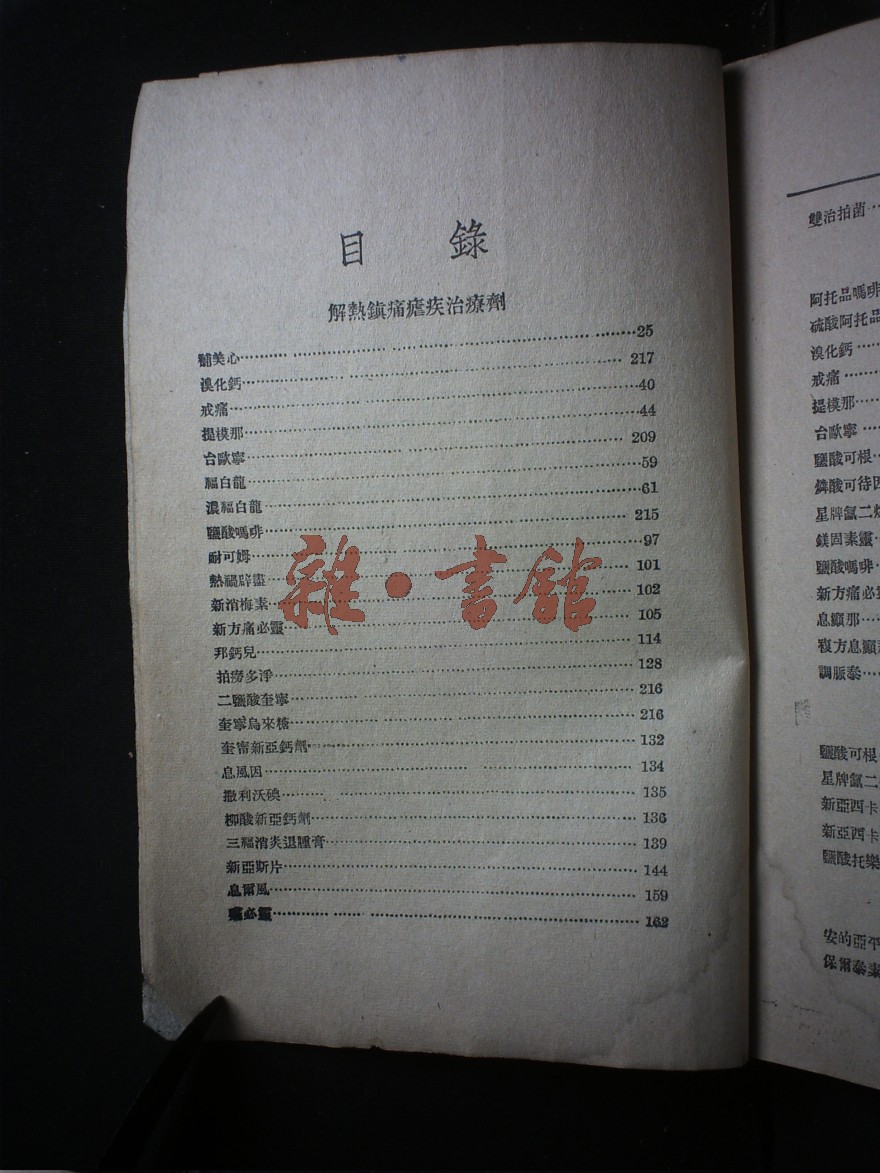 目錄
解熱鎮痛瘧疾治療劑
美心 25
溴化鈣 217
戒痛 40
提模那 44
台歐寧 209
福白龍 59
濃福白龍 61
鹽酸嗎啡 215
耐可姆 97
熱 辟靈 101
新消梅素 102
新方痛必靈 105
邦鈣兒 114
拍癆多淨 128
二鹽酸奎寧 216
奎寧烏來糖 216
奎甯新亞鈣劑 132
息風因 134
撒利沃碘 135
柳酸新亞鈣劑 136
三福消炎退腫膏 139
新亞斯片 144
息爾風 159
痛必靈 162
雜·書館
雙治拍菌
阿托品嗎啡
硫酸阿托品
溴化鈣
戒痛
提模那
台歐寧
鹽酸可根
燐酸可待因
星牌氯二烷
鎂固素靈
鹽酸嗎啡
新方痛必靈
息顱那
複方息顱那
調脈泰
鹽酸可根
星牌氯二
新亞西卡
新亞西卡
鹽酸托樂
安的亞平
保爾泰素